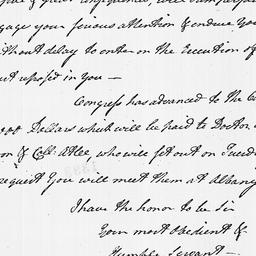 gage your serious attention & endue you
without delay to enter on the Execution of
ut reposed in you —
Congress has advanced to the
Dollars which will be paid to Doctor
on & Coll. Atlee, who will set out on Tuesd
request you will meet them at Albany
I have the honor to be Sir
Your most Obedient &
Humble Servant —